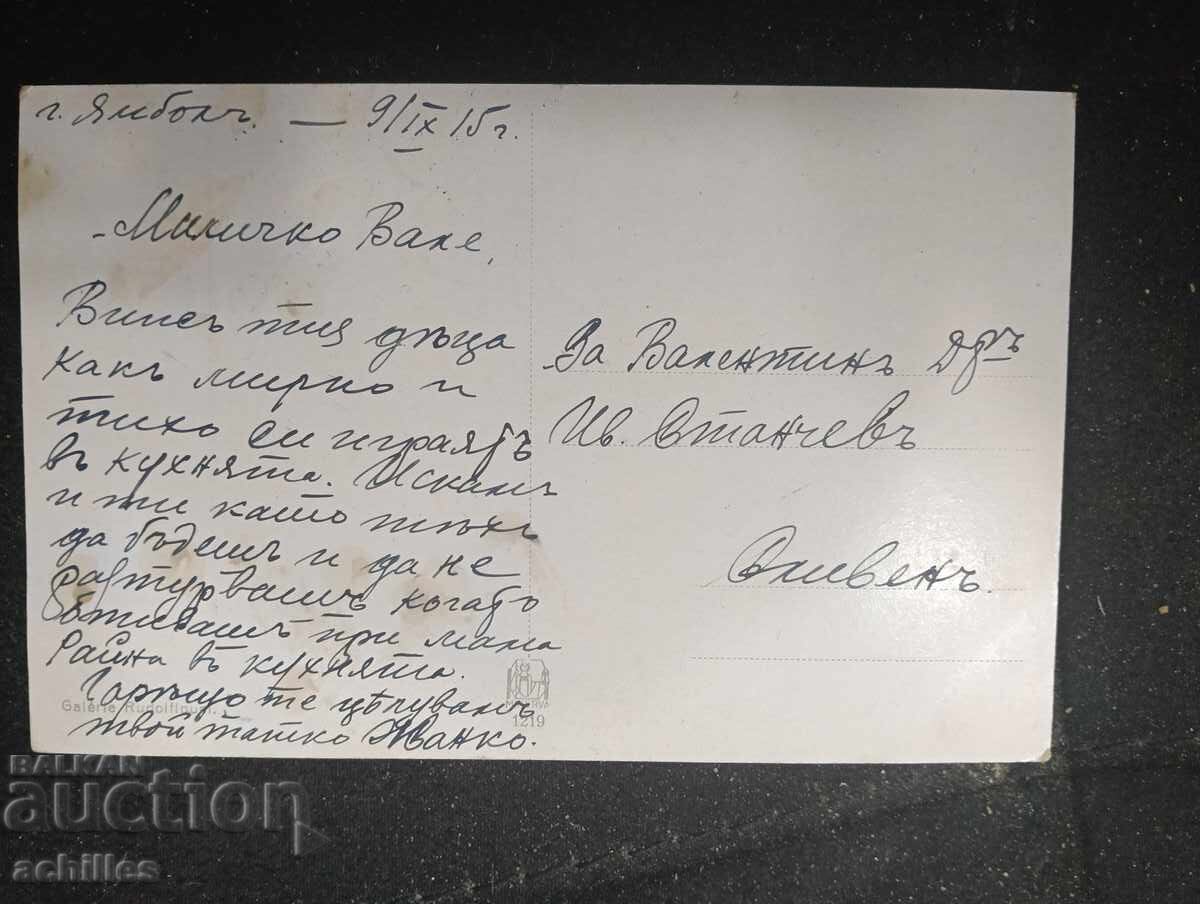 г. Ямболъ. — 9/IX 15 г.
Миличко Вале,
Вижъ тия дѣца
какъ мирно и
тихо си играятъ
въ кухнята. Искамъ
и ти като тѣхъ
да бѫдешъ и да не
когато
отивашъ при мама
Райна въ кухнята.
Горѣщо те цѣлувамъ
твой татко Иванко.
За Валентинъ Дръ
Ив. Станчевъ
Сливенъ.
Galerie Rudolfinum.
1219
BALKAN
auction
achilles